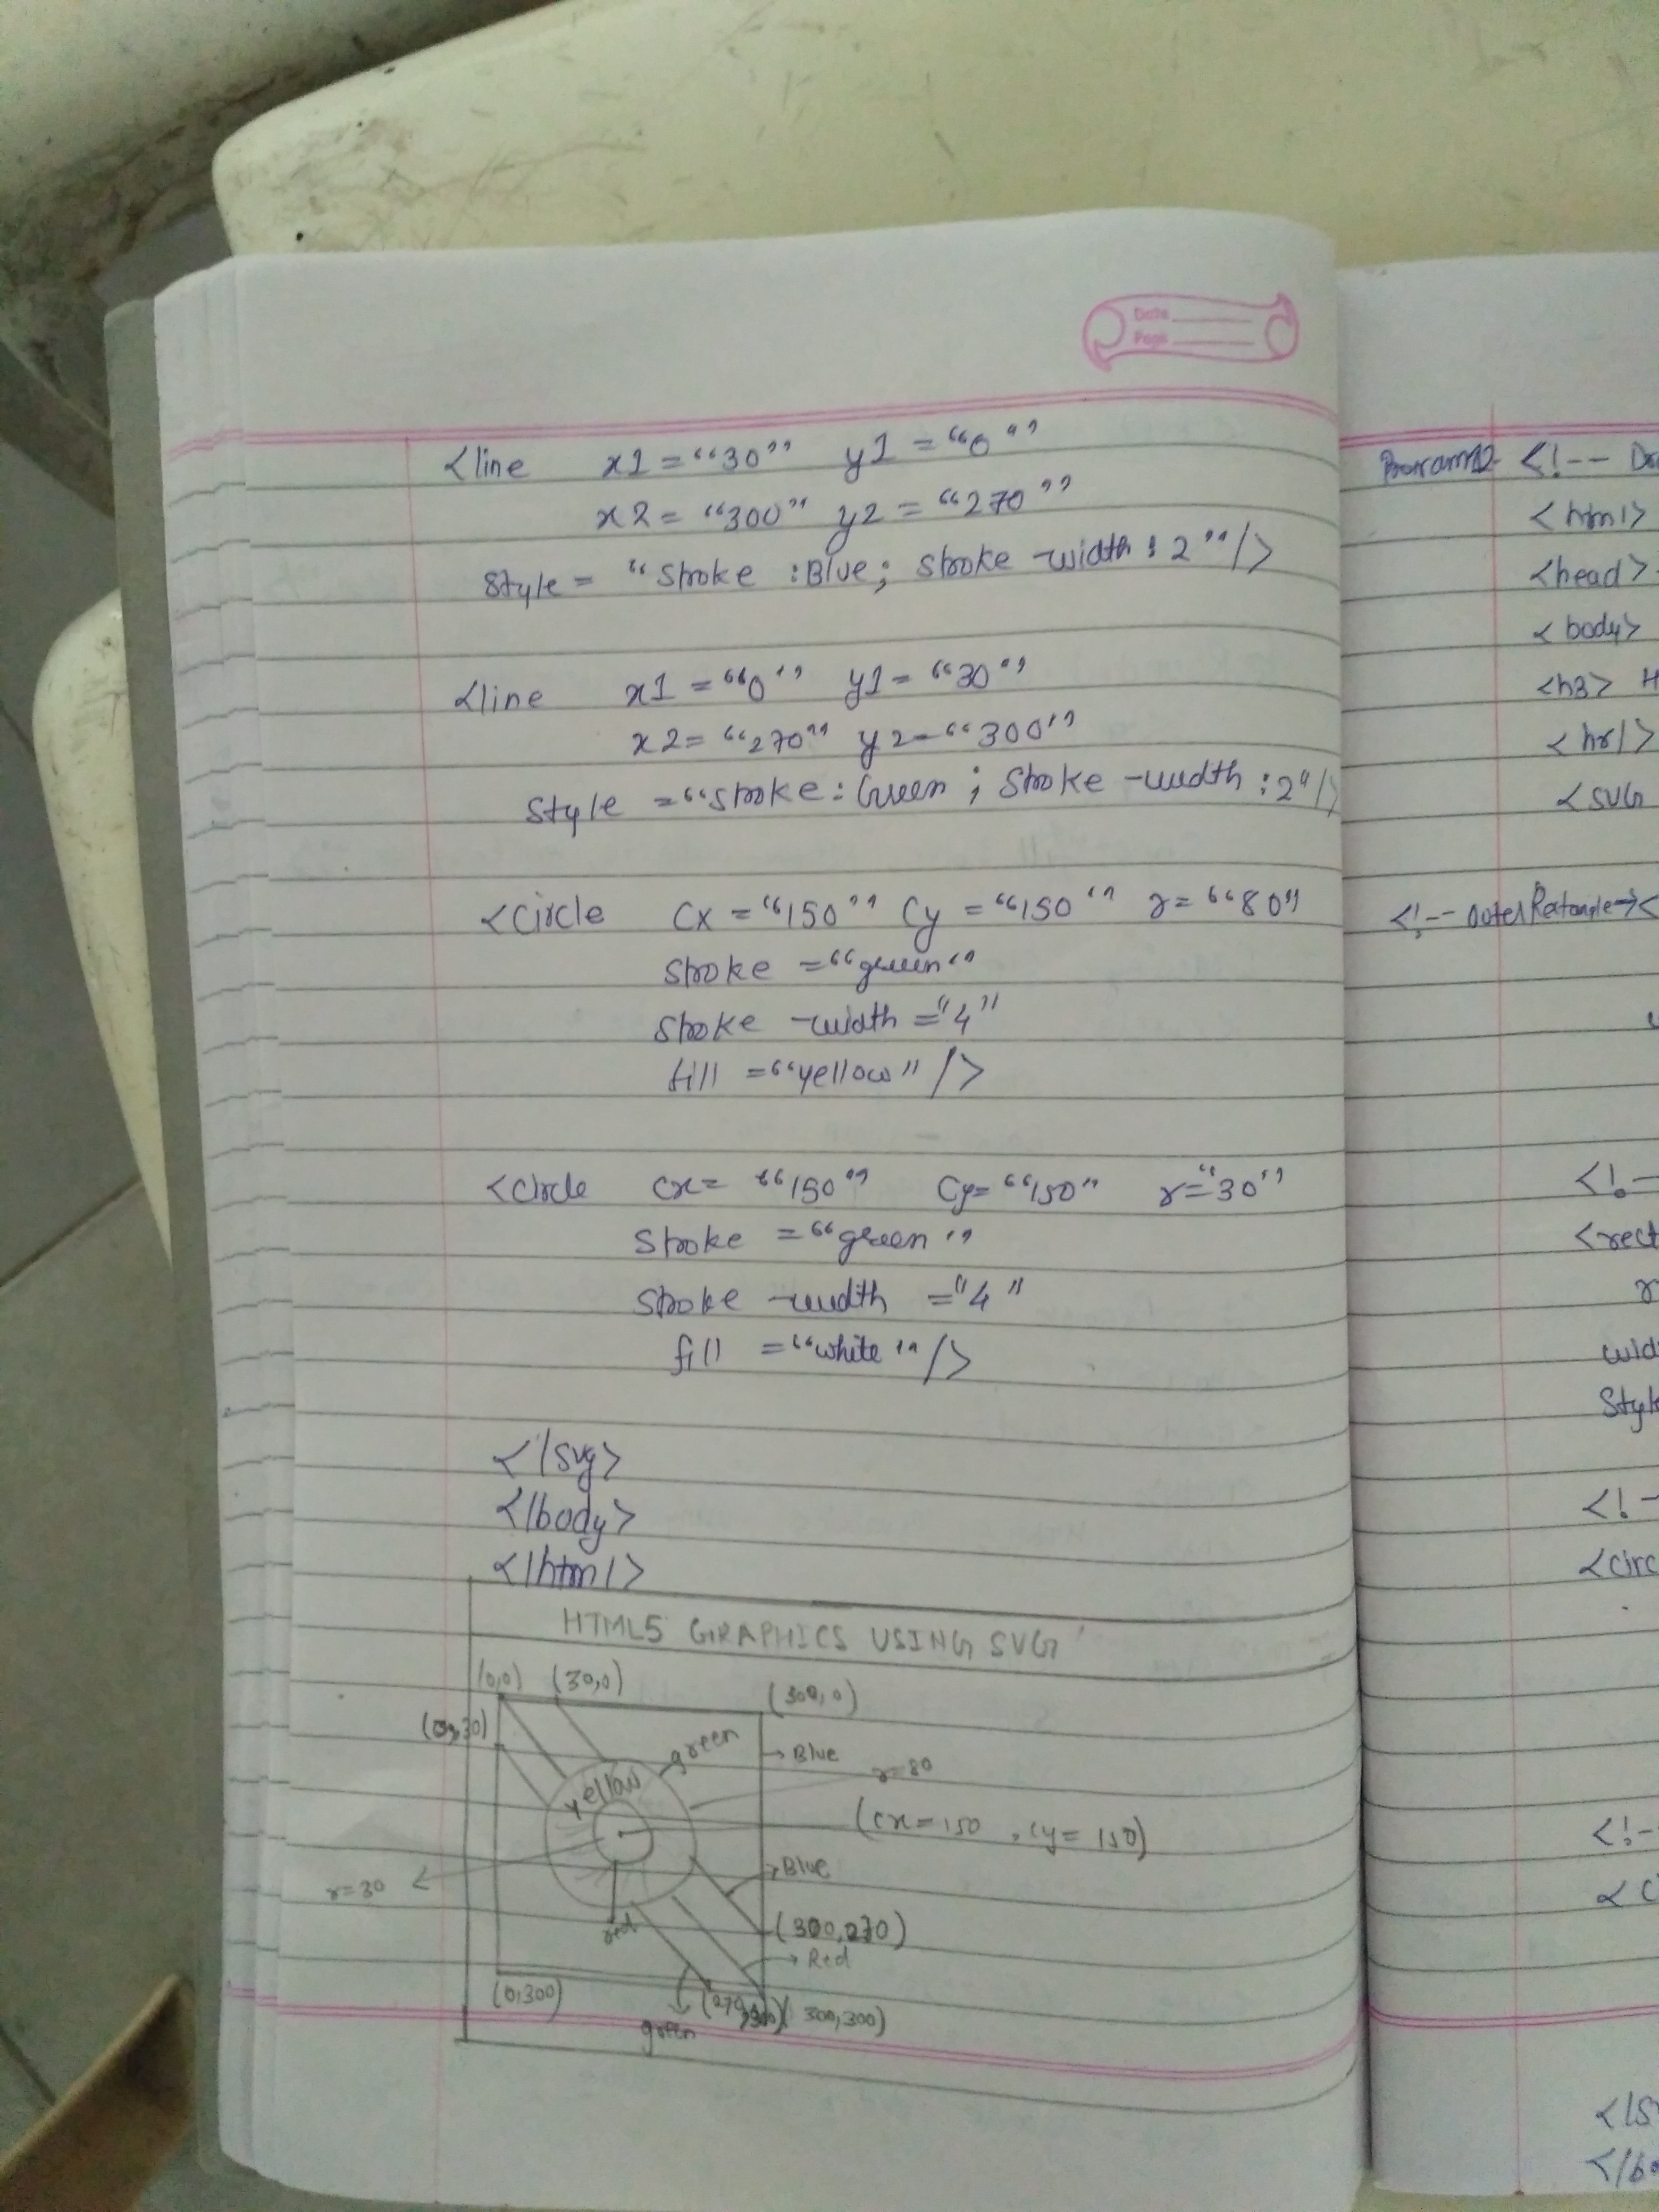 Date
Page
<line x1 = "30" y1 = "0"
x2 = "300" y2 = "270"
Style = "Stroke : Blue; Stroke -width : 2"/>
<line x1 = "0" y1 = "30"
x2 = "270" y2 = "300"
Style = "Stroke : Green ; Stroke -width : 2"/>
<Circle Cx = "150" Cy = "150" r = "80"
Stroke = "green"
Stroke -width = "4"
fill = "yellow" />
<Circle cx = "150" Cy = "150" r = "30"
Stroke = "green"
Stroke -width = "4"
fill = "white" />
</svg>
</body>
</html>
HTML5 GRAPHICS USING SVG
(0,0) (30,0) (300,0)
(0,30) green Blue
yellow r=80
(cx=150 , cy=150)
Blue
r=30
red (300,270)
Red
(0,300) (270,300) (300,300)
green
Program12 <!--
<html>
<head>
<body>
<h3> H
<hr/>
<SVG
<!-- Outer Rectangle--> <
<!--
<rect
Style
<!-
<circ
<!-
</S
</bo